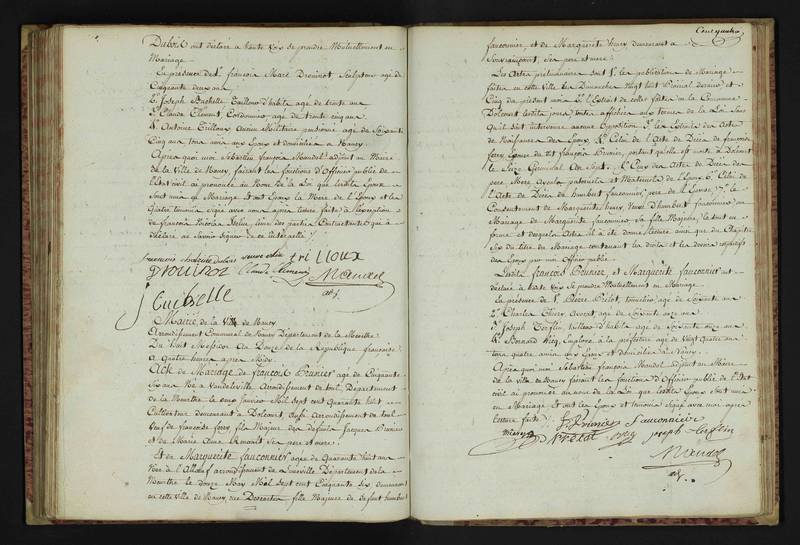 Dubois ont déclaré a haute voix se prendre Mutuellement en
Mariage
En presence de 1° françois Marc Drouinot, Sculpteur age de
Cinquante deux ans
2° Joseph Bachelle Tailleur d'habits agé de trente ans
3° Claude Clement, Cordonnier age de trente cinq ans
4° Antoine Trilloux ancien Militaire pensionné agé de Soixante
Cinq ans tous amis aux Epoux et domiciliés a Nancy
Apres quoi moi Sebastien françois Mandel adjoint au Maire
de la Ville de Nancy, faisant les fonctions d'Officier public de
l'Etat civil ai prononcé au Nom de la Loi que lesdits Epoux
sont unis en Mariage Et ont les Epoux la Mere de l'Epoux et les
Quatre temoins signé avec moi apres lecture faite à l'exception
de françois Nicolas l'une des parties Contractantes qui a
déclaré ne savoir signer de ce interpellé
trilloux
Drouinot Claude Clement Mandel
adj.
Mairie de la Ville de Nancy
Arrondissement Communal de Nancy Département de la Meurthe
Du huit Messidor An Douze de la République française
a Quatre heures apres Midy
Acte de Mariage de françois Prunier age de Cinquante
Six ans Né a Vandeleville Arrondissement de toul, Departement
de la Meurthe le onze Janvier Mil Sept cent Quarante huit
Cultivateur demeurant a Dolcourt dit Arrondissement de toul
Veuf de françoise ferry fils Majeur des defunts Jacques Prunier
et de Marie Anne Renault ses pere et mere
Et de Marguerite fauconnier agée de Quarante huit ans
Née a arrondissement de Lunéville Département de la
Meurthe le douze May Mil Sept cent Cinquante Six demeurant
en cette Ville de Nancy, rue Descartes fille Majeure de defunt humbert
fauconnier, et de Marguerite henry demeurant a
ses pere et mere
Les Actes preliminaires sont 1° les publications de Mariage
faites en cette Ville les Dimanche Vingt huit Prairial dernier et
Cinq du présent mois 2° l'Extrait de celles faites en la Commune
Dolcourt lesdits jours, toutes affichées aux termes de la Loi sans
Qu'il soit intervenu aucune Opposition 3° les Extraits des Actes
de Naissance des Epoux 4° Celui de l'Acte de Décès de françoise
ferry Epouse du dit françois Prunier, portant qu'elle est morte à Dolcourt
le Seize Germinal An Sept 5° Ceux des Actes de Décès des
pere Mere Ayeulx paternels et Maternels de l'Epoux 6° Celui de
l'Acte de Décès de humbert fauconnier pere de l'Epouse 7° le
Consentement de Marguerite henry Veuve d'humbert fauconnier au
Mariage de Marguerite fauconnier Sa fille Majeure, le tout en
forme et desquels Actes il a été donné lecture ainsi que du Chapitre
Six du titre du Mariage contenant les droits et les devoirs respectifs
des Epoux par moi Officier public
Lesdits françois Prunier, et Marguerite fauconnier ont
déclaré à haute voix Se prendre Mutuellement en Mariage
En présence de 1° Pierre Prélot tonnelier age de Soixante ans
2° Charles Thiery Avocat, age de Soixante onze ans
3° Joseph Tailleur d'habits age de Soixante onze ans
4° Bernard Employé à la préfecture age de Vingt Quatre ans
tous quatre amis aux Epoux et domiciliés a Nancy
Apres quoi moi Sebastien françois Mandel adjoint au Maire
de la Ville de Nancy faisant les fonctions d'Officier public de l'Etat
civil ai prononcé au nom de la Loi que lesdits Epoux sont unis
en Mariage Et ont les Epoux et temoins Signé avec moi apres
lecture faite
f Prunier fauconnier
joseph
Mandel
adj.